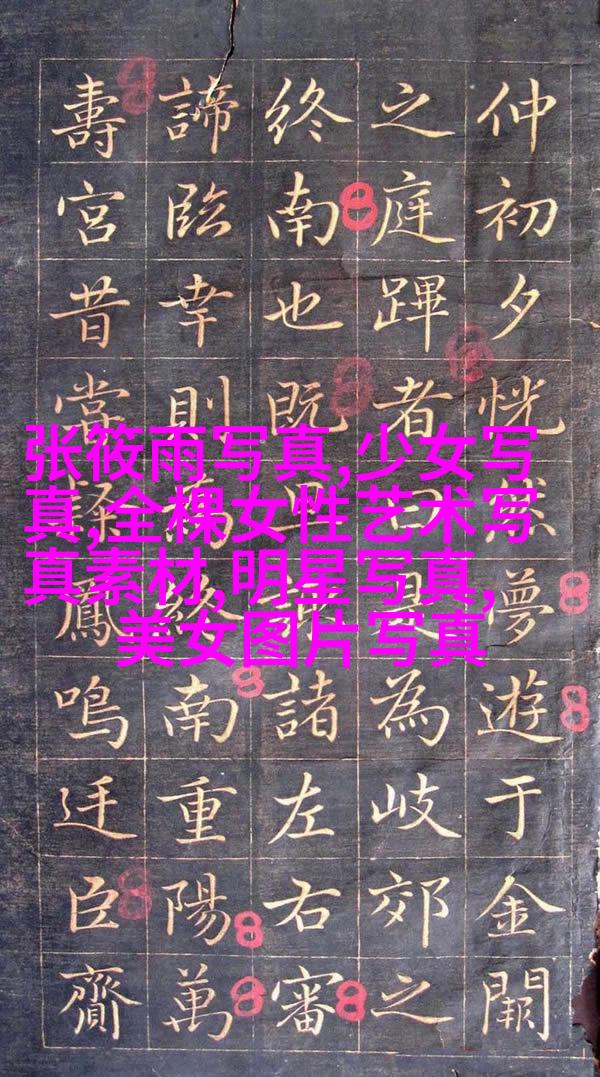 仲初夕恍然夢遊于金闕
之庭蹕者曰為岐郊之
終南也既諸左右審
諦臨幸則終南重陽萬
壽宮昔常鳳鳴迋臣齎
张筱雨写真,少女写
真,全棵女性艺术写
真素材,明星写真,
美女图片写真